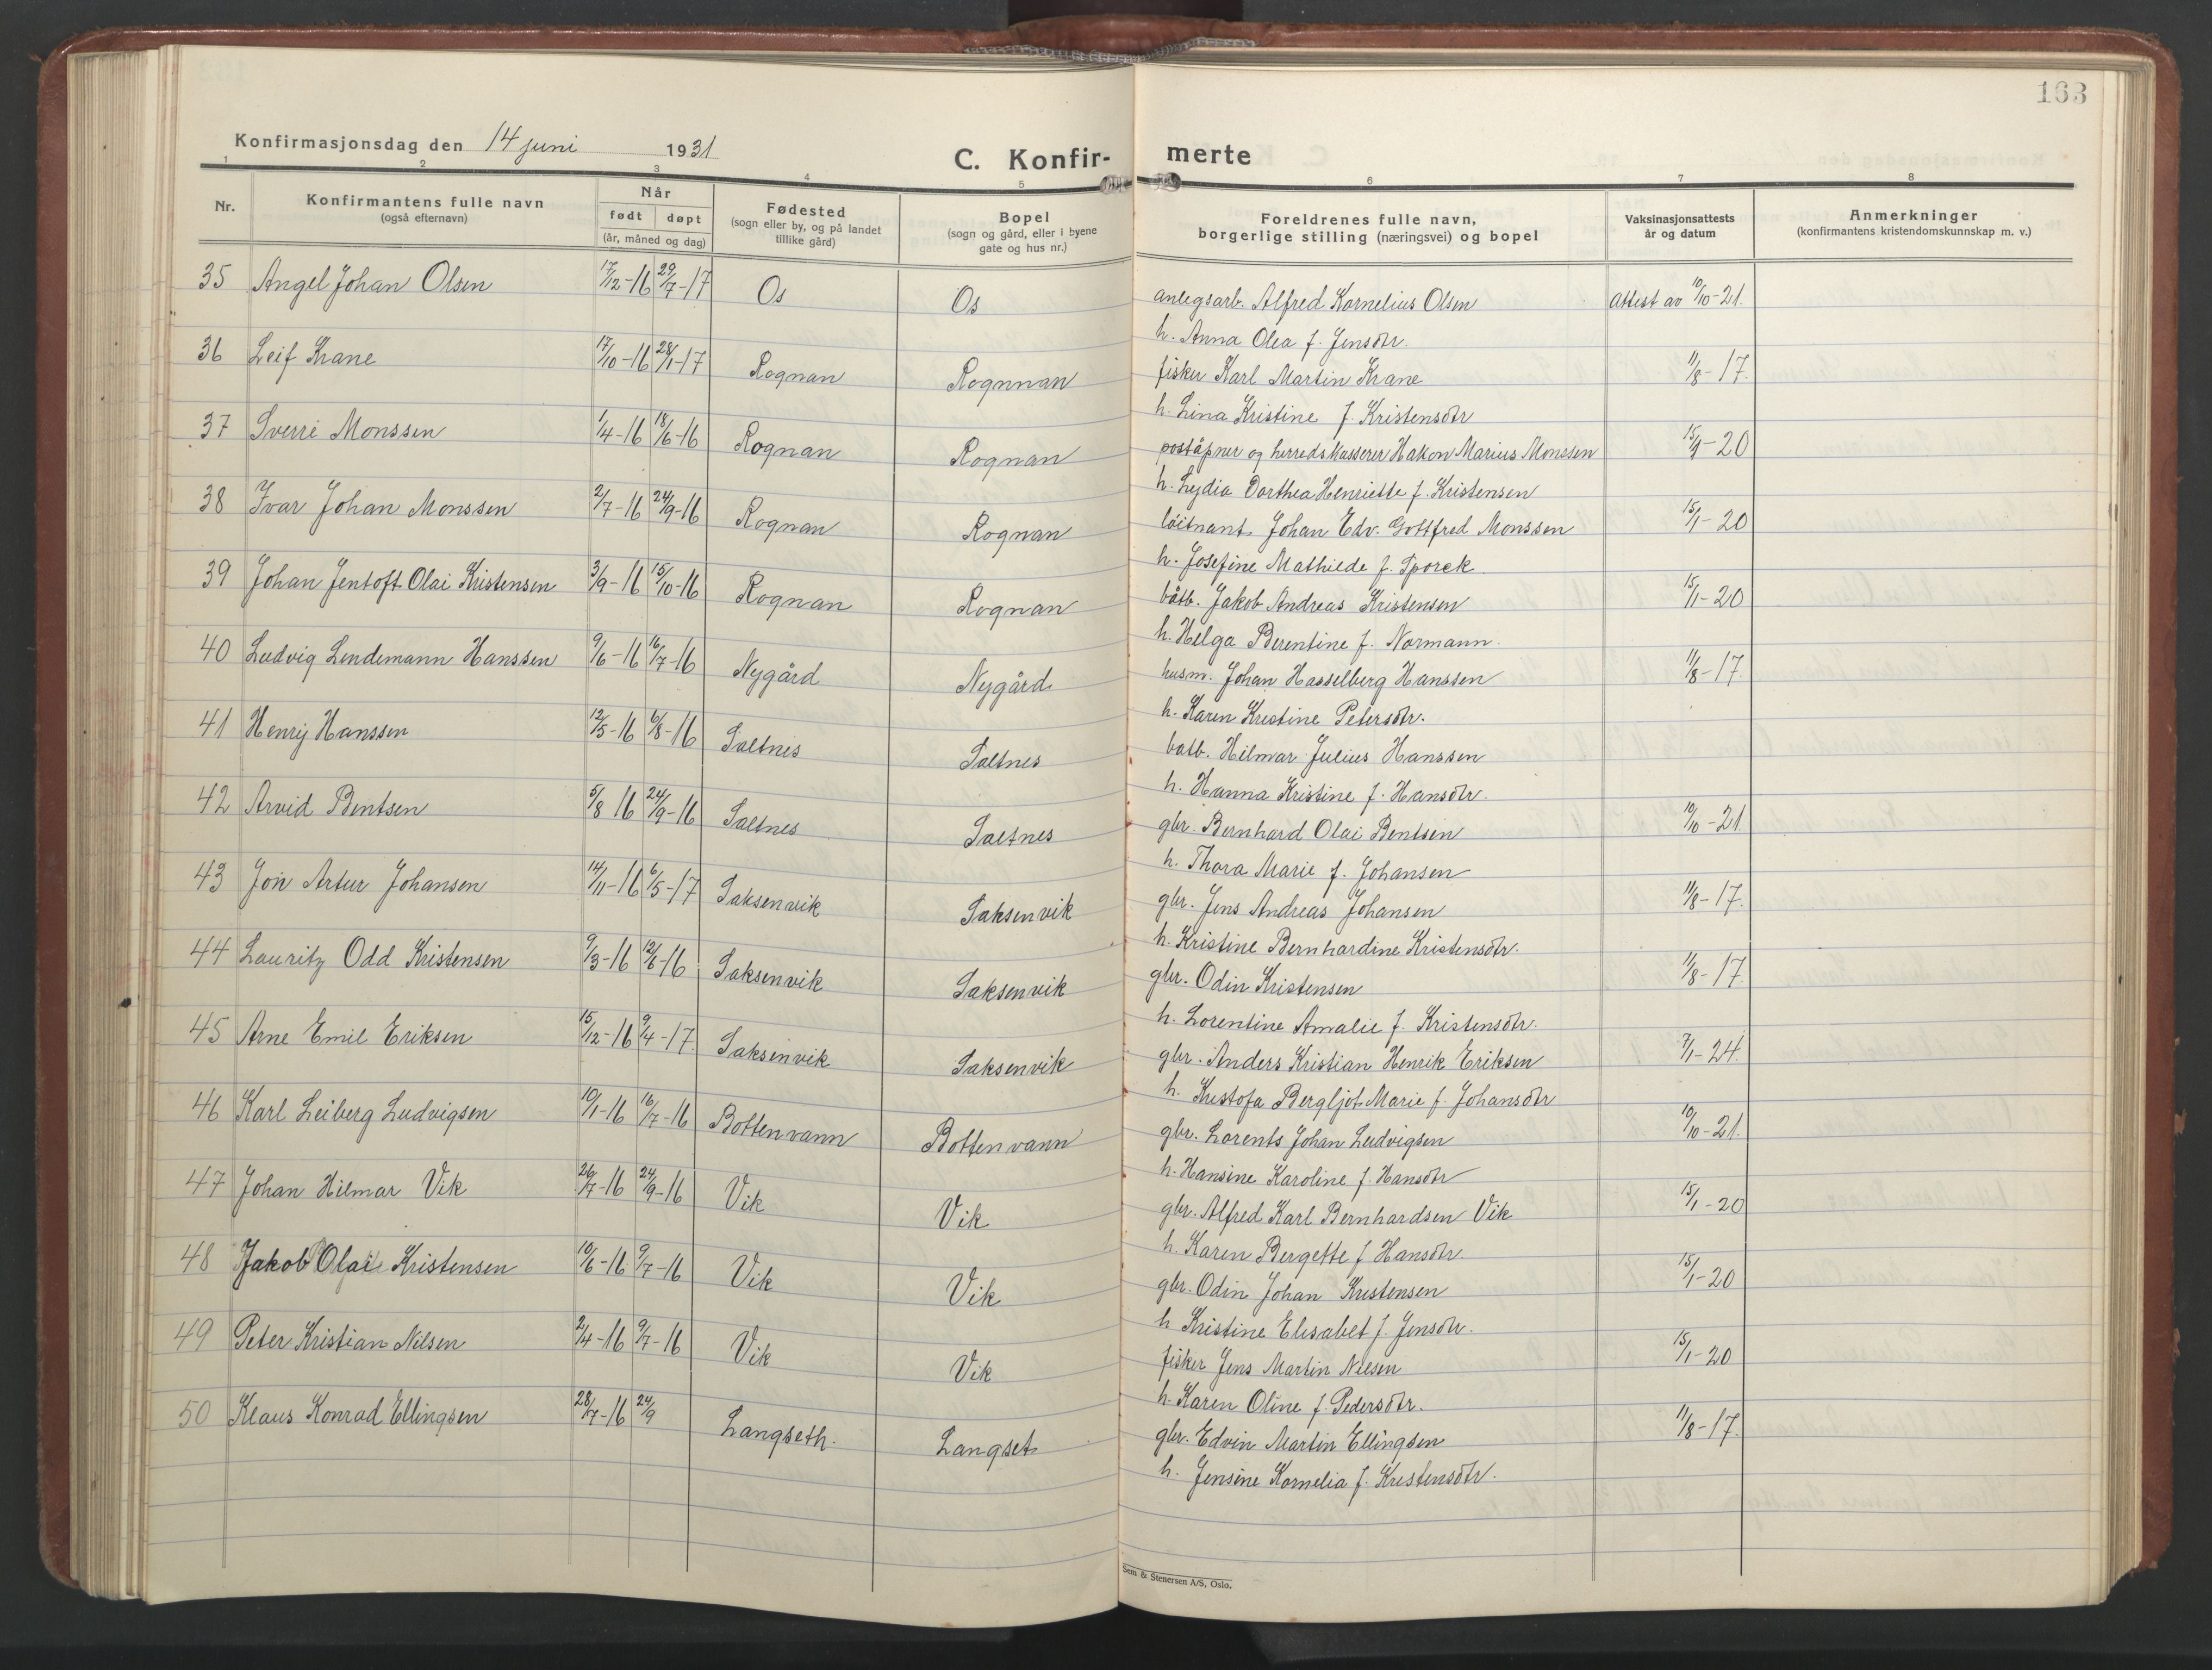 163
Konfirmasjonsdag den 14 juni 1931
C. Konfir- merte
1 2 3 4 5 6 7 8
Nr. Konfirmantens fulle navn (også efternavn) Når født døpt (år, måned og dag) Fødested (sogn eller by, og på landet tillike gård) Bopel (sogn og gård, eller i byene gate og hus nr.) Foreldrenes fulle navn, borgerlige stilling (næringsvei) og bopel Vaksinasjonsattests år og datum Anmerkninger (konfirmantens kristendomskunnskap m. v.)
35 Angel Johan Olsen 17/12-16 29/7-17 Os Os anlegsarb. Alfred Kornelius Olsen attest av 10/10-21.
h. Anna Olea f. Jensdtr.
36 Leif Krane 17/10-16 28/1-17 Rognan Rognnan fisker Karl Martin Krane 11/8-17.
h. Lina Kristine f. Kristensdtr
37 Sverre Monssen 1/4-16 18/6-16 Rognan Rognan poståpner og herredskasserer Hakon Marius Monssen 15/9-20
h. Lydia Dorthea Henriette f. Kristensen
38 Ivar Johan Monssen 2/7-16 24/9-16 Rognan Rognan løitnant Johan Edv. Gottfred Monssen 15/1-20
h. Josefine Mathilde f. Sporck
39 Johan Jentoft Olai Kristensen 3/9-16 15/10-16 Rognan Rognan båtb. Jakob Andreas Kristensen 15/1-20
h. Helga Berentine f. Normann.
40 Ludvig Lindemann Hanssen 9/6-16 16/7-16 Nygård Nygård husm. Johan Hasselberg Hanssen 11/8-17.
h. Karen Kristine Petersdtr.
41 Henry Hanssen 12/5-16 6/8-16 Saltnes Saltnes batb. Hilmar Julius Hanssen
h. Hanna Kristine f. Hansdtr.
42 Arvid Bentsen 5/8 16 24/9-16 Saltnes Saltnes gbr. Bernhard Olai Bentsen 10/10-21
h. Thora Marie f. Johansen
43 Jon Artur Johansen 14/11-16 6/5-17 Saksenvik Saksenvik gbr. Jens Andreas Johansen 11/8-17.
h. Kristine Bernhardine Kristensdtr.
44 Lauritz Odd Kristensen 9/3-16 12/6-16 Saksenvik Saksenvik gbr. Odin Kristensen 11/8-17.
h. Lorentine Amalie f. Kristensdtr.
45 Arne Emil Eriksen 15/12-16 9/4-17. Saksenvik Saksenvik gbr. Anders Kristian Henrik Eriksen 7/1-24.
h. Kristofa Bergljot Marie f. Johansdtr
46 Karl Leiberg Ludvigsen 10/1-16 16/7-16 Bottenvann Bottenvann gbr. Lorents Johan Ludvigsen 10/10-21.
h. Hansine Karoline f. Hansdtr
47 Johan Hilmar Vik 26/7-16 24/9-16 Vik Vik gbr. Alfred Karl Bernhardsen Vik 15/1-20
h. Karen Bergette f Hansdtr.
48 Jakob Olai Kristensen 10/6-16 9/7-16 Vik Vik gbr. Odin Johan Kristensen 15/1-20
h Kristine Elisabet f. Jensdtr.
49 Peter Kristian Nilsen 2/4-16 9/7-16 Vik Vik fisker Jens Martin Nilsen 15/1-20
h. Karen Oline f. Pedersdtr.
50 Klaus Konrad Ellingsen 28/7-16 24/9 Langseth. Langset gbr. Edvin Martin Ellingsen 11/8-17.
h. Jensine Kornelia f. Kristensdtr.
Sem & Stenersen A/S, Oslo.